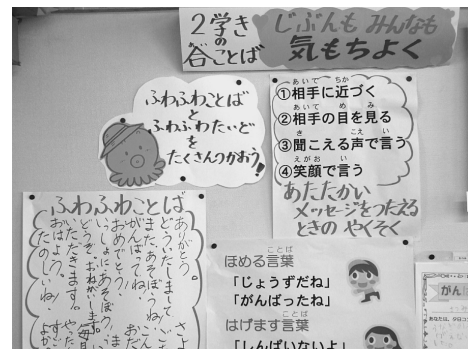 2学き
の
合ことば
じぶんも みんなも
気もちよく
ふわふわことば
と
ふわふわたいど
を
たくさんつかおう!
①相手に近づく
②相手の目を見る
③聞こえる声で言う
④笑顔で言う
あたたかい
メッセージをつたえる
ときの やくそく
ふわふわことば
ありがとう。
どういたしまして
またあそぼうね
がんばってね
おめでとう。
いっしょにあそぼう
どうぞ。おねがいします。
いただきます。
おはよう。
たのしいね。
ほめる言葉
「じょうずだね」
「がんばったね」
はげます言葉
「しんぱいないよ」
がん